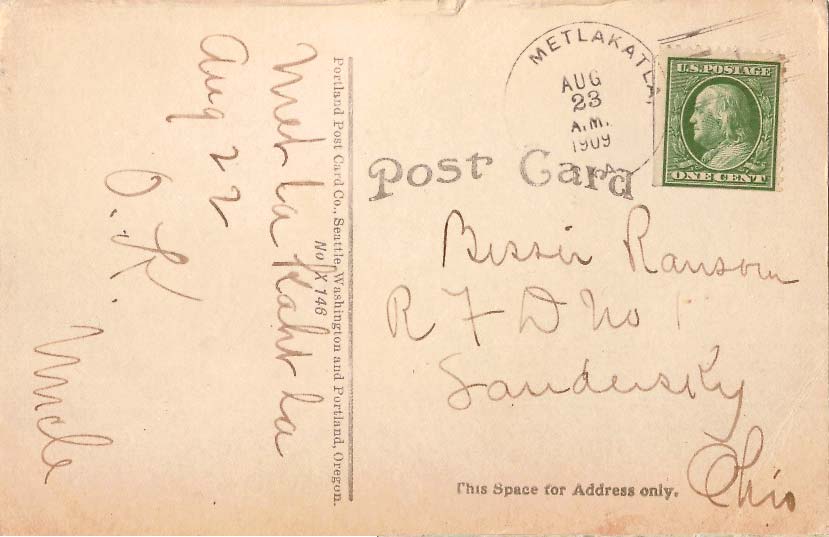 Met la Kaht la
Aug 22
O. K.
Uncle
Portland Post Card Co., Seattle, Washington and Portland, Oregon.
No. X 146
METLAKATLA,
AUG
23
A.M.
1909
U.S. POSTAGE
ONE CENT
Post Card
Bessie Ransom
R F D No 1
Sandersky
Ohio
This Space for Address only.